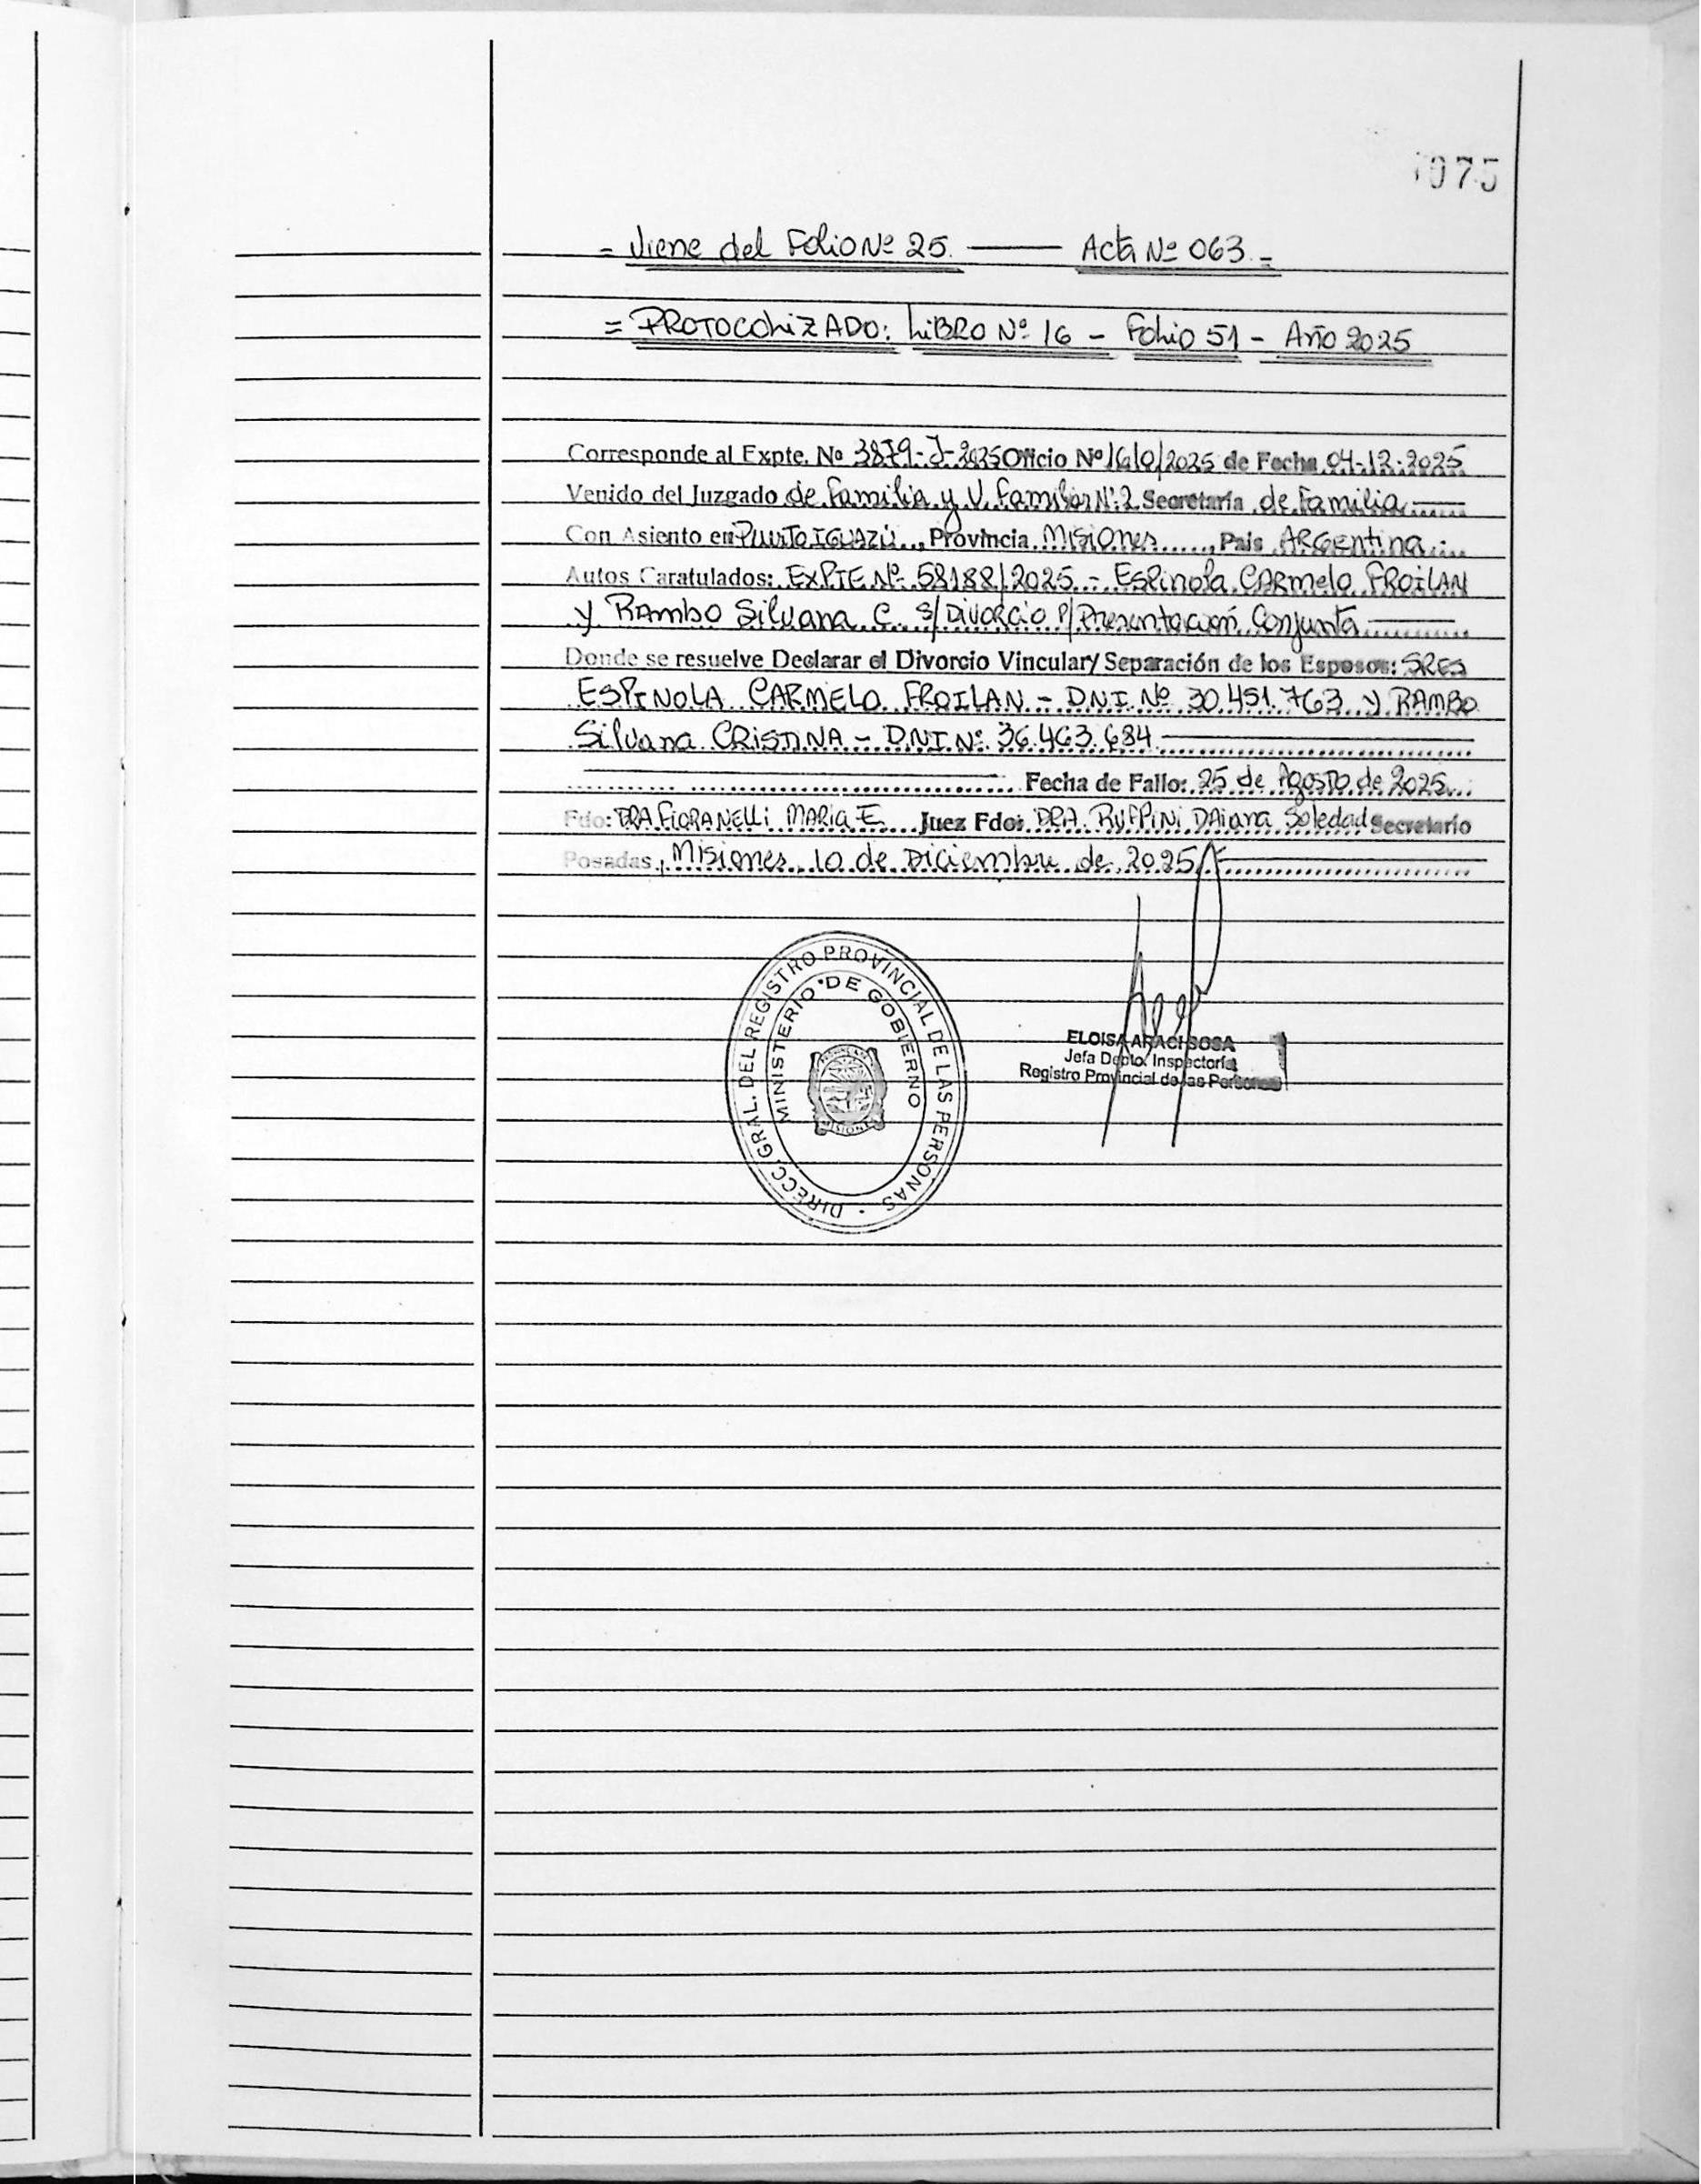 075
= Viene del Folio Nº 25. —— Acta Nº 063.=
= PROTOCOLIZADO: LIBRO Nº 16 - Folio 51 - Año 2025
Corresponde al Expte. Nº 3879-J-2025 Oficio Nº 1610/2025 de Fecha 04-12-2025
Venido del Juzgado de Familia y V. Familiar Nº 2 Secretaría de Familia
Con Asiento en Puerto IGUAZÚ, Provincia Misiones, Pais ARGentina
Autos Caratulados: EXPTE Nº 58188/2025 - Espinola CARmelo FROILAN
y RAmbo Silvana C. S/ Divorcio P/ Presentación Conjunta
Donde se resuelve Declarar el Divorcio Vincular y/ Separación de los Esposos: SRES
ESPINOLA CARMELO FROILAN - D.N.I. Nº 30.451.763 y RAMBO
Silvana CRISTINA - D.N.I. Nº 36.463.684
Fecha de Fallo: 25 de Agosto de 2025
Fdo: DRA FIORANELLI MARIA E. Juez Fdo: DRA. RUFFINI DAiana Soledad Secretario
Posadas, Misiones, 10 de Diciembre de 2025
DIRECC. GRAL. DEL REGISTRO PROVINCIAL DE LAS PERSONAS
MINISTERIO DE GOBIERNO
MISIONES
ELOISA ARACI SOSA
Jefa Depto. Inspectoría
Registro Provincial de las Personas